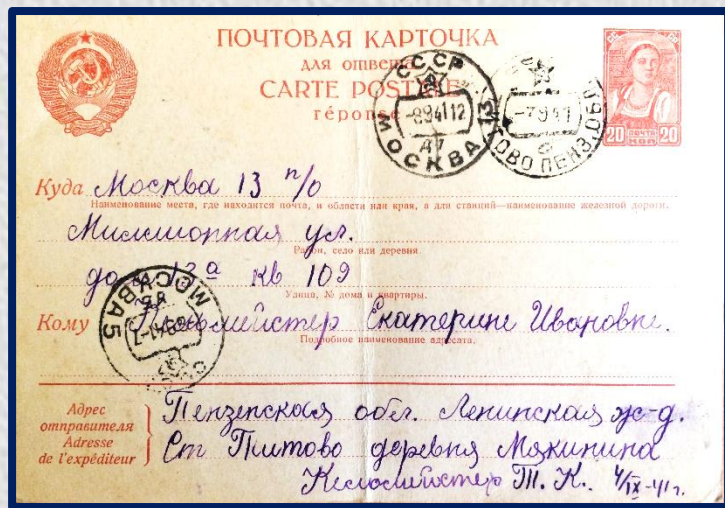 ПОЧТОВАЯ КАРТОЧКА
для ответа
CARTE POSTALE
réponse
СССР
МОСКВА 13
-8 9 41 12
-7 9 41
ТОВО ПЕНЗ. ОБЛ
20 ПОЧТА 20
КОП
Куда Москва 13 п/о
Наименование места, где находится почта, и области или края, а для станций—наименование железной дороги.
Миллионная ул.
Район, село или деревня
дом 13а кв 109
Улица, № дома и квартиры.
МОСКВА 5
Кому Екатерине Ивановне.
Подробное наименование адресата.
Адрес
отправителя
Adresse
de l'expéditeur
Пензенская обл. Ленинская ж-д.
Ст Титово деревня Мякинина
Т. К. 4/IX-41 г.